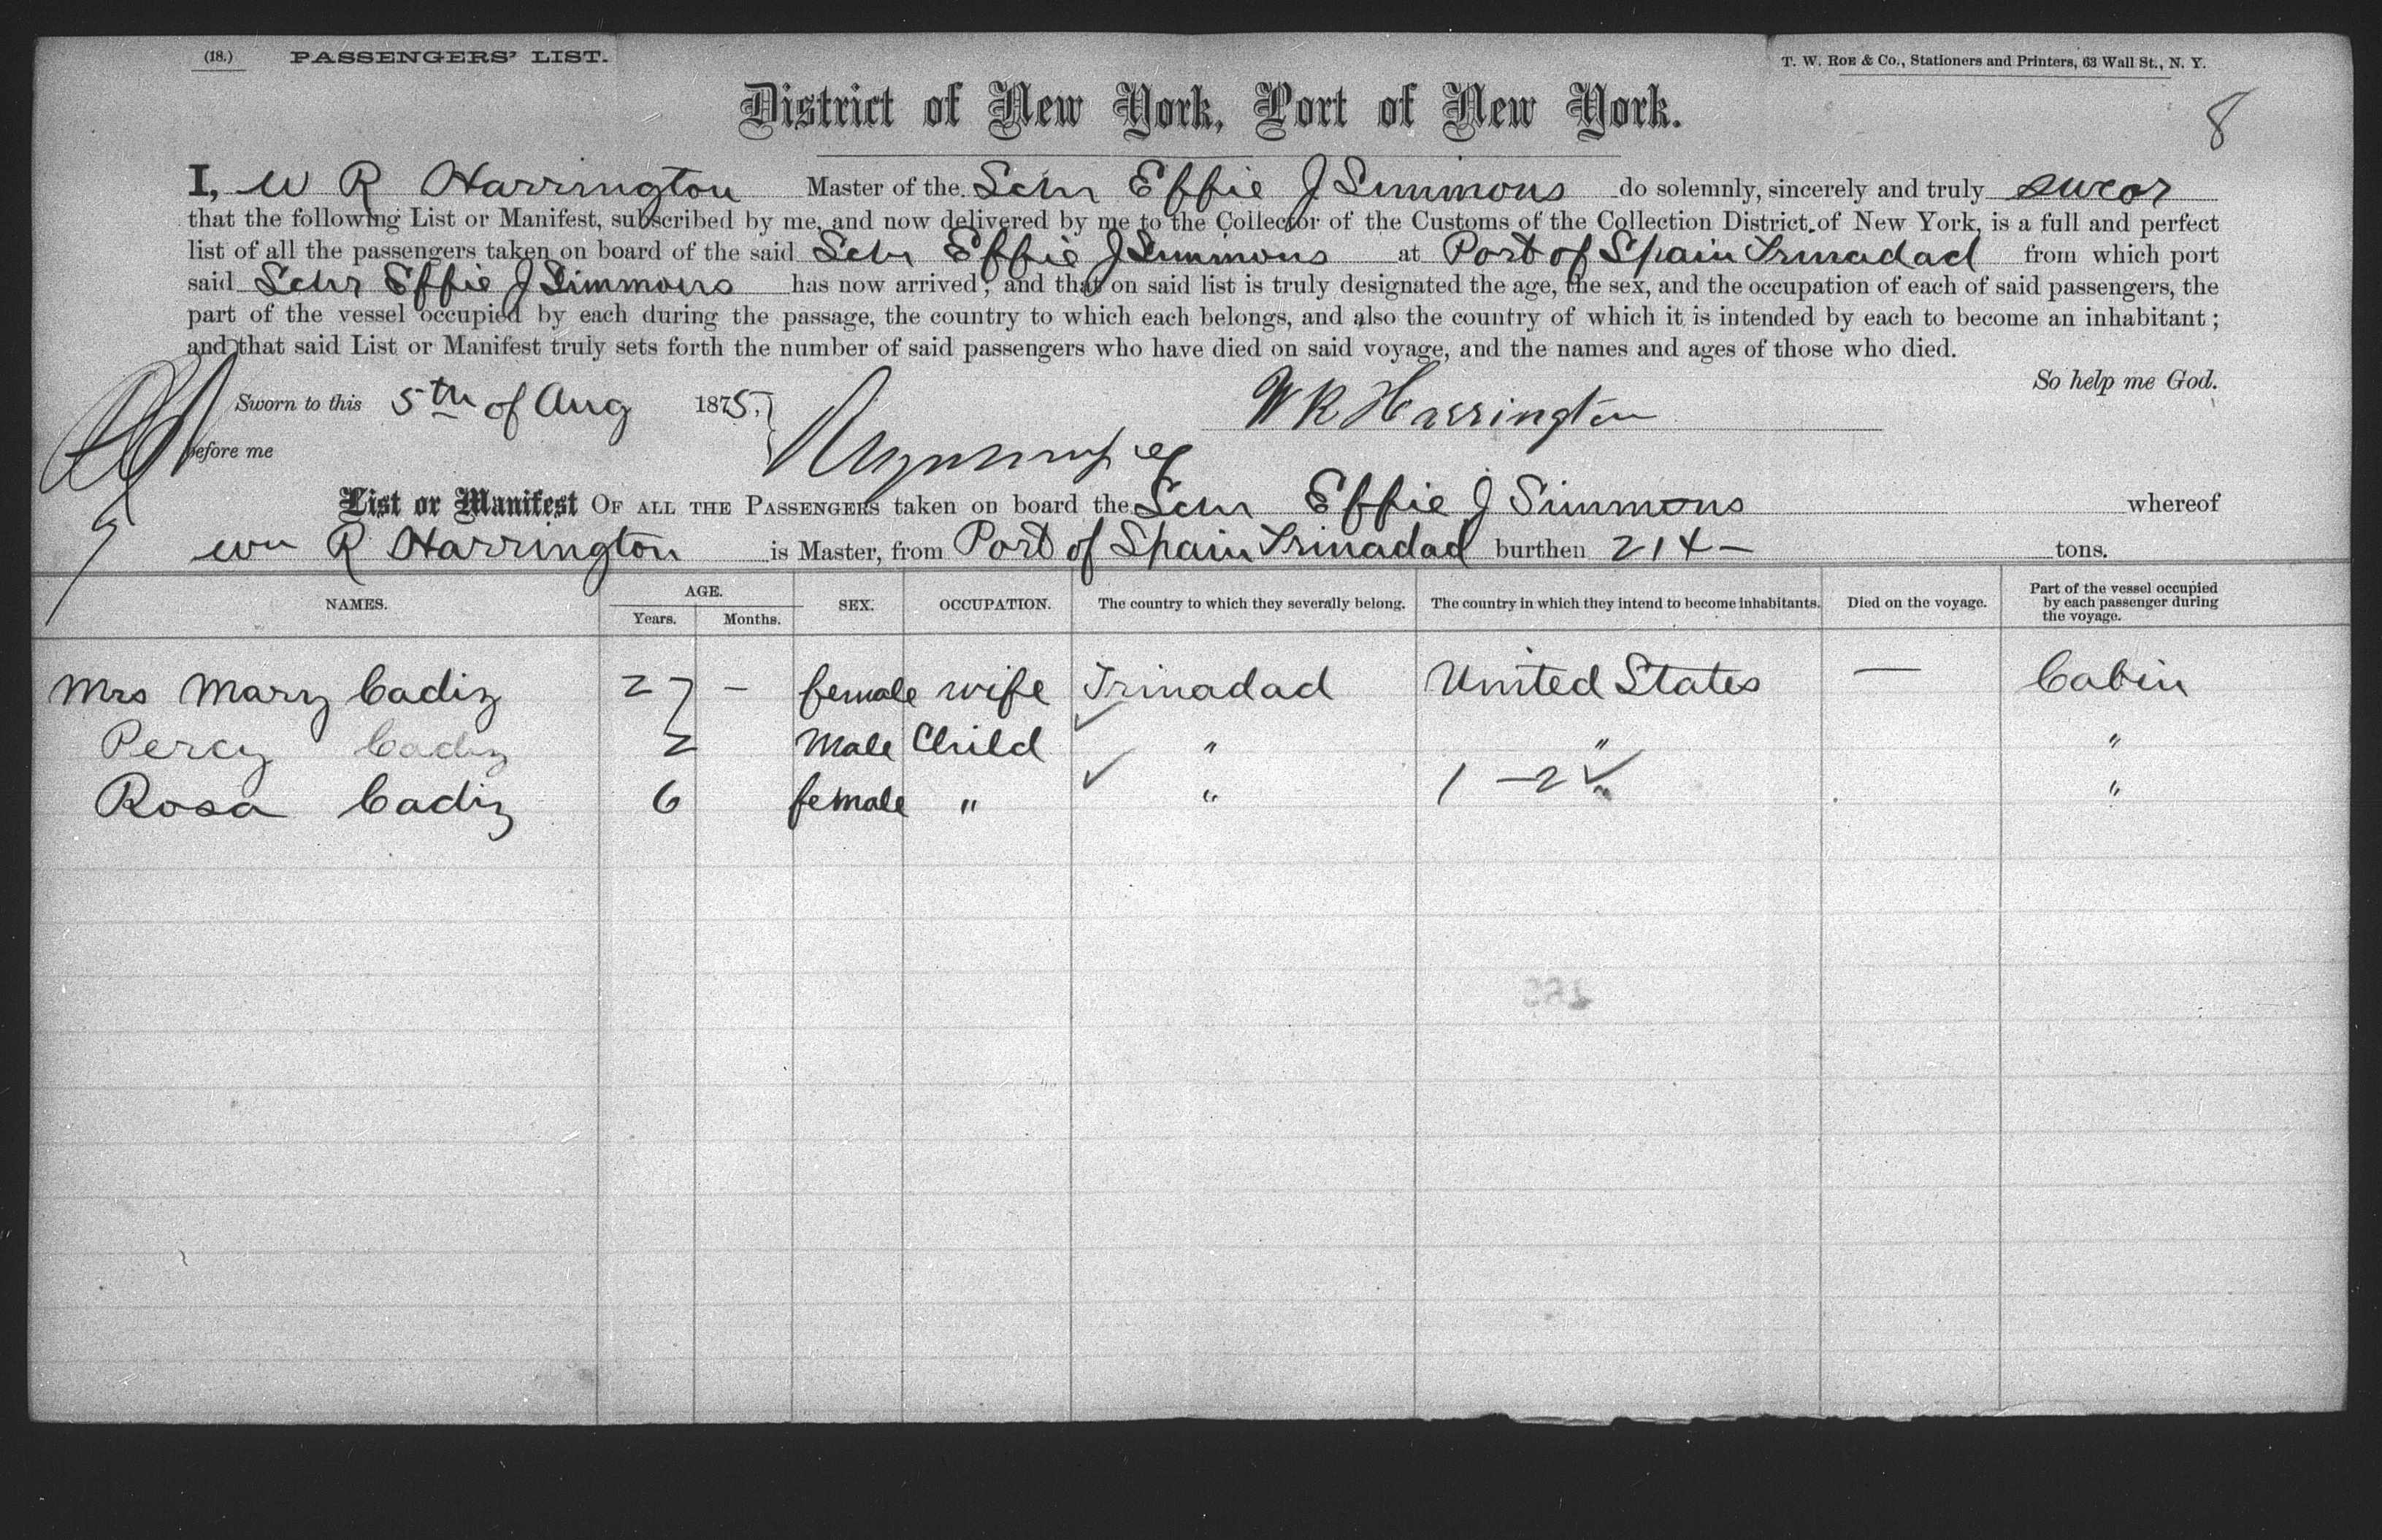 (18.) PASSENGERS' LIST. T. W. ROE & Co., Stationers and Printers, 63 Wall St., N. Y.
District of New York, Port of New York.
8
I, W R Harrington Master of the Schr Effie J Simmons do solemnly, sincerely and truly swear
that the following List or Manifest, subscribed by me, and now delivered by me to the Collector of the Customs of the Collection District of New York, is a full and perfect
list of all the passengers taken on board of the said Schr Effie J Simmons at Port of Spain Trinadad from which port
said Schr Effie J Simmons has now arrived; and that on said list is truly designated the age, the sex, and the occupation of each of said passengers, the
part of the vessel occupied by each during the passage, the country to which each belongs, and also the country of which it is intended by each to become an inhabitant;
and that said List or Manifest truly sets forth the number of said passengers who have died on said voyage, and the names and ages of those who died.
So help me God.
Sworn to this 5th of Aug 1875, W R Harrington
before me
List or Manifest OF ALL THE PASSENGERS taken on board the Schr Effie J Simmons whereof
Wm R Harrington is Master, from Port of Spain Trinadad burthen 214 – tons.
NAMES. AGE. Years. Months. SEX. OCCUPATION. The country to which they severally belong. The country in which they intend to become inhabitants. Died on the voyage. Part of the vessel occupied by each passenger during the voyage.
Mrs Mary Cadiz 27 – female wife Trinadad United States — Cabin
Percy Cadiz 2 Male Child " " "
Rosa Cadiz 6 female " " 1 – 2 ✓ " "